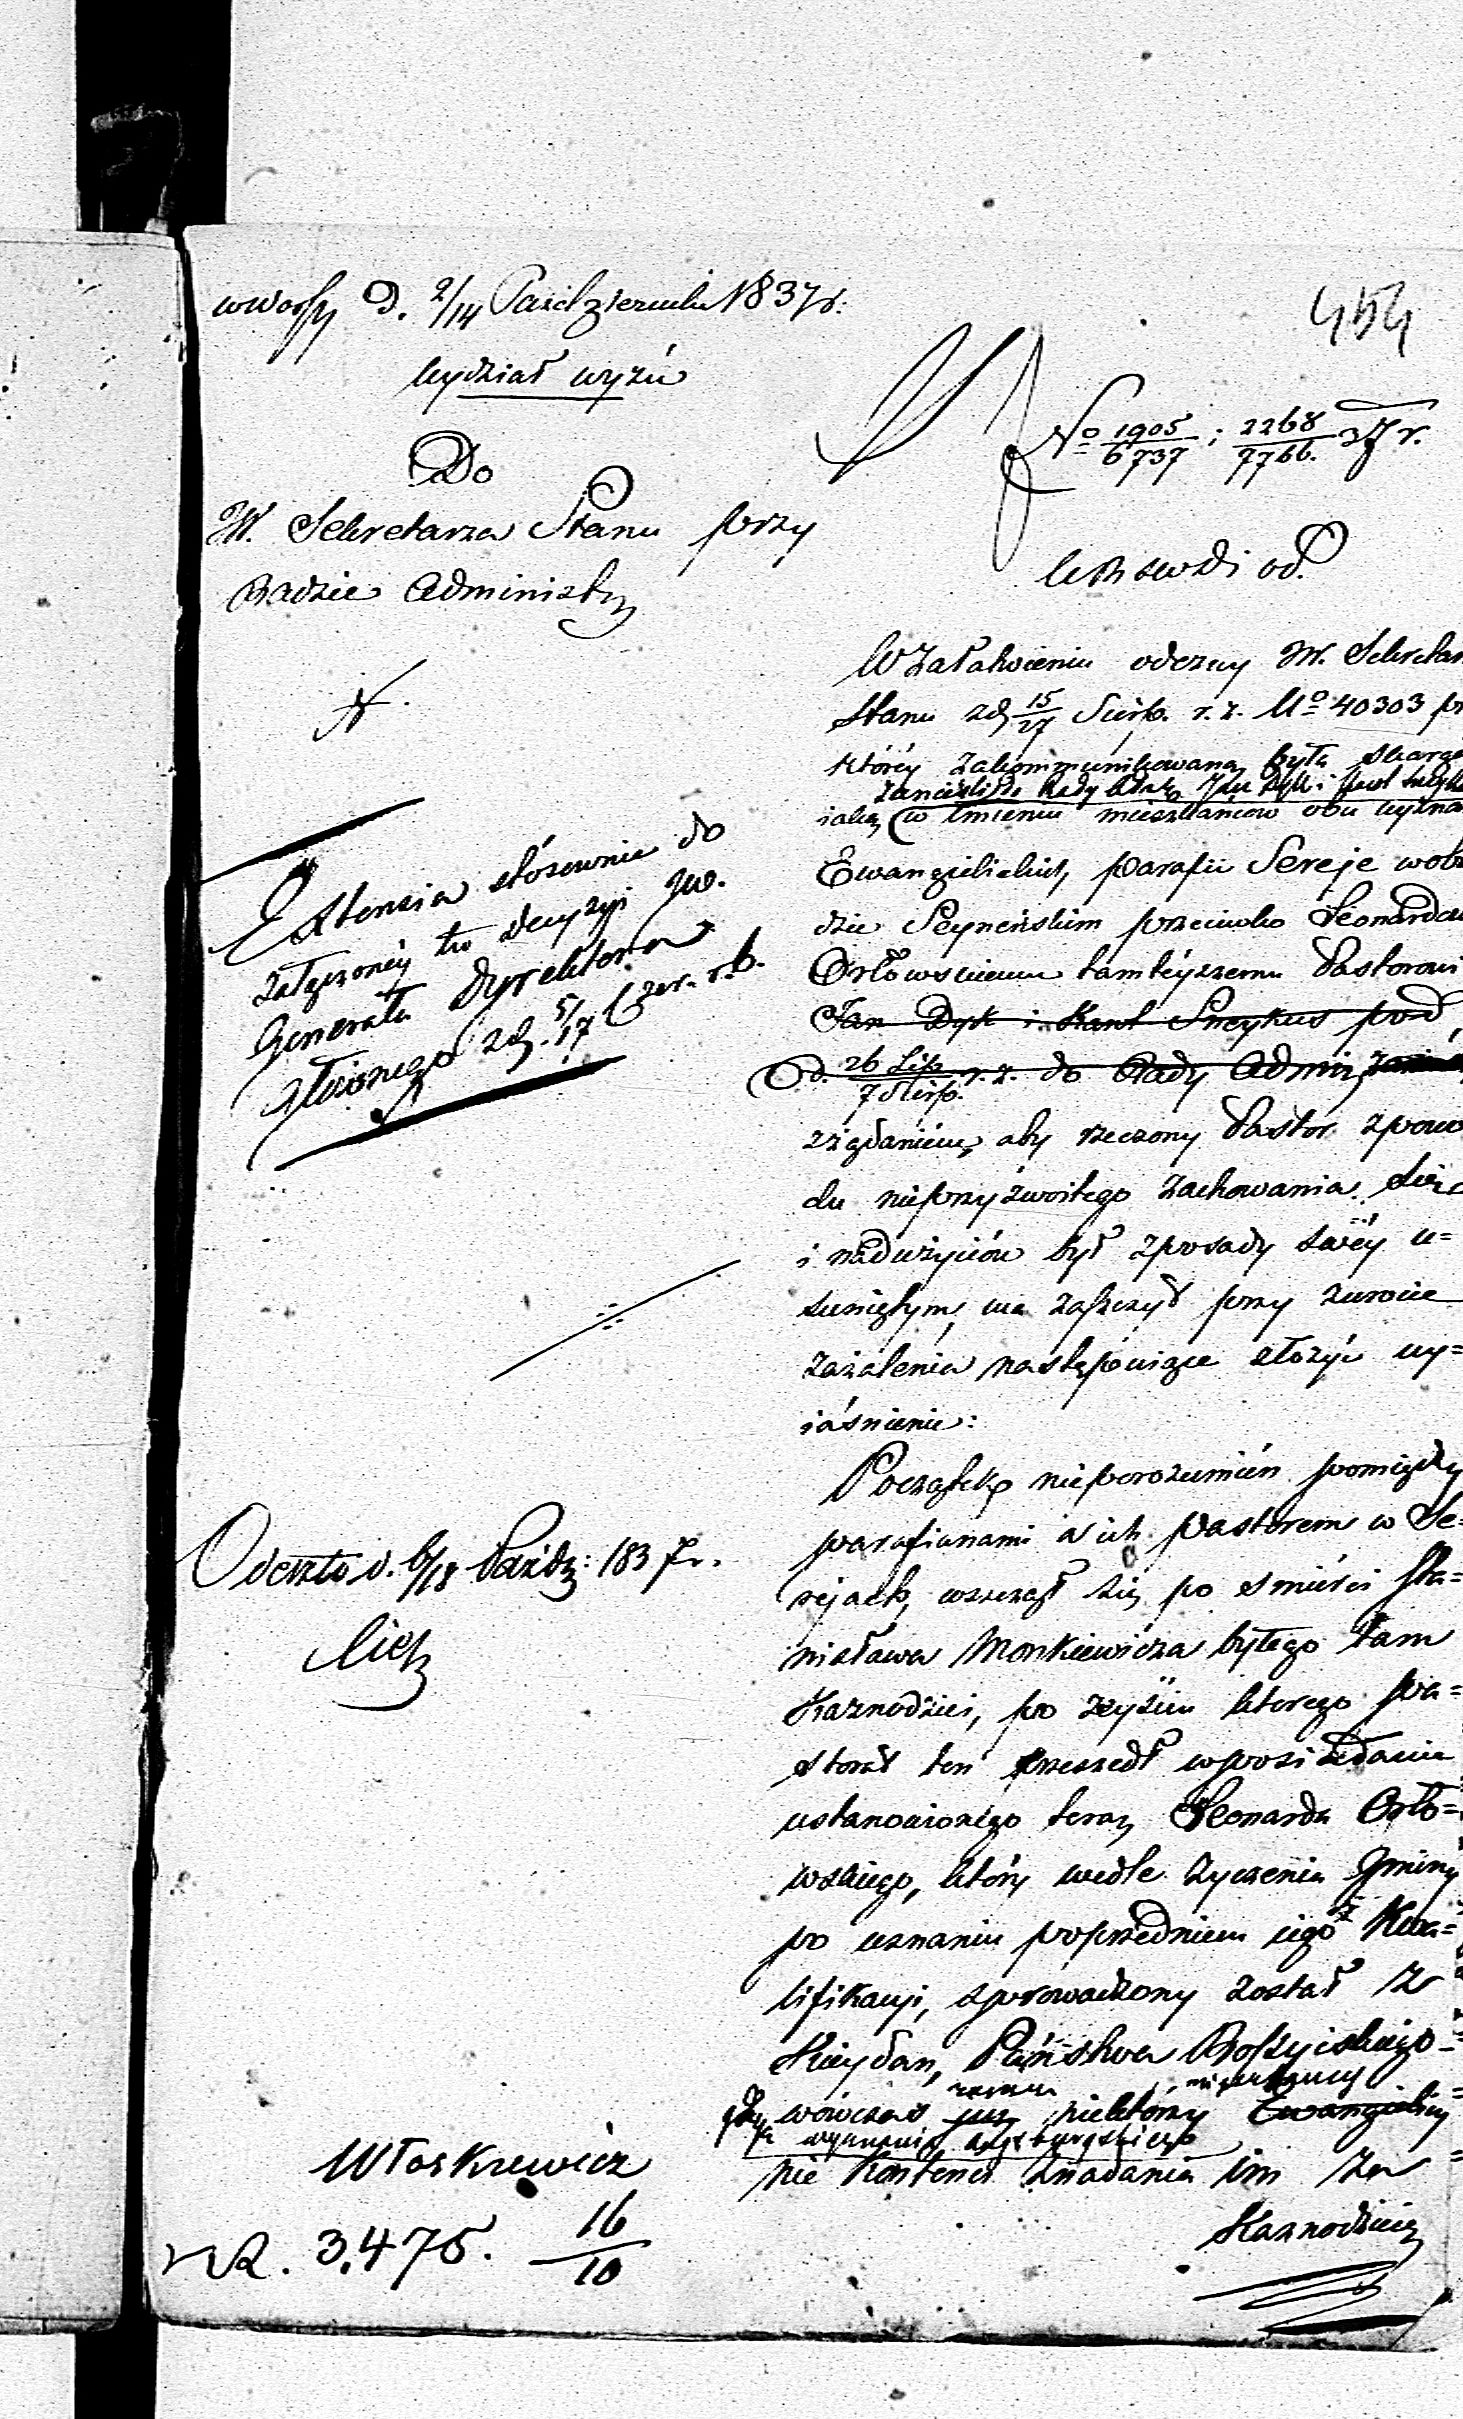 454
w Warszy d. 2/14 Października 1837 r.
Wydział wyzń
Do
W. Sekretarza Stanu przy
Radzie Administr
No 1905/6737 ; 2268/7766. 37 r.
Extensia stósownie do
załączonéy tu decyzyi JW.
Generała Dyrektora
złożonego zd. 5/17 Czer. r. b.
Odeszło d. 6/18 Paźdz: 1837 r.
Włoskiewicz
3.475. 16/10
W załatwieniu odezwy JW. Sekretar
Stanu zd. 15/27 Sierp. r. z. No 40303 pr
któréy zakommunikowaną była skarga
iaką w imieniu mieszkańców obu wyzna
Ewangielickich, parafii Sereje w obw
dzie Seyneńskim przeciwko Leonardow
Orłowskiemu tamtéyszemu Pastorowi
Jan Dyk i Karol Sneykus pod
d. 26 Lip./7 Sierp. r. z. do Rady Admin
z żądaniem, aby rzeczony Pastor z powo
du nieprzyzwoitego zachowania się
i nadużyciów był z posady swéy u=
suniętym, ma zaszczyt przy zwrocie
zażalenia następuiące złożyć wy=
iaśnienie:
Początek nieporozumień pomiędzy
parafianami a ich Pastorem w Se=
rejach, wszczął się po śmierci Sta=
nisława Monkiewicza byłego tam
Kaznodziei, po zeyściu którego pa=
storat ten przeszedł w posiadanie
ustanowionego teraz Leonarda Orło=
wskiego, który wedle życzenia Gminy
po uznaniu poprzedniem iego Kwa=
lifikacyi, sprowadzony został z
Kieydan, Państwa Rossyiskiego
wówczas już niektórzy Ewangielicy
wyznania augsburgskiego
nie kontenci z nadania im za
Kaznodzieię